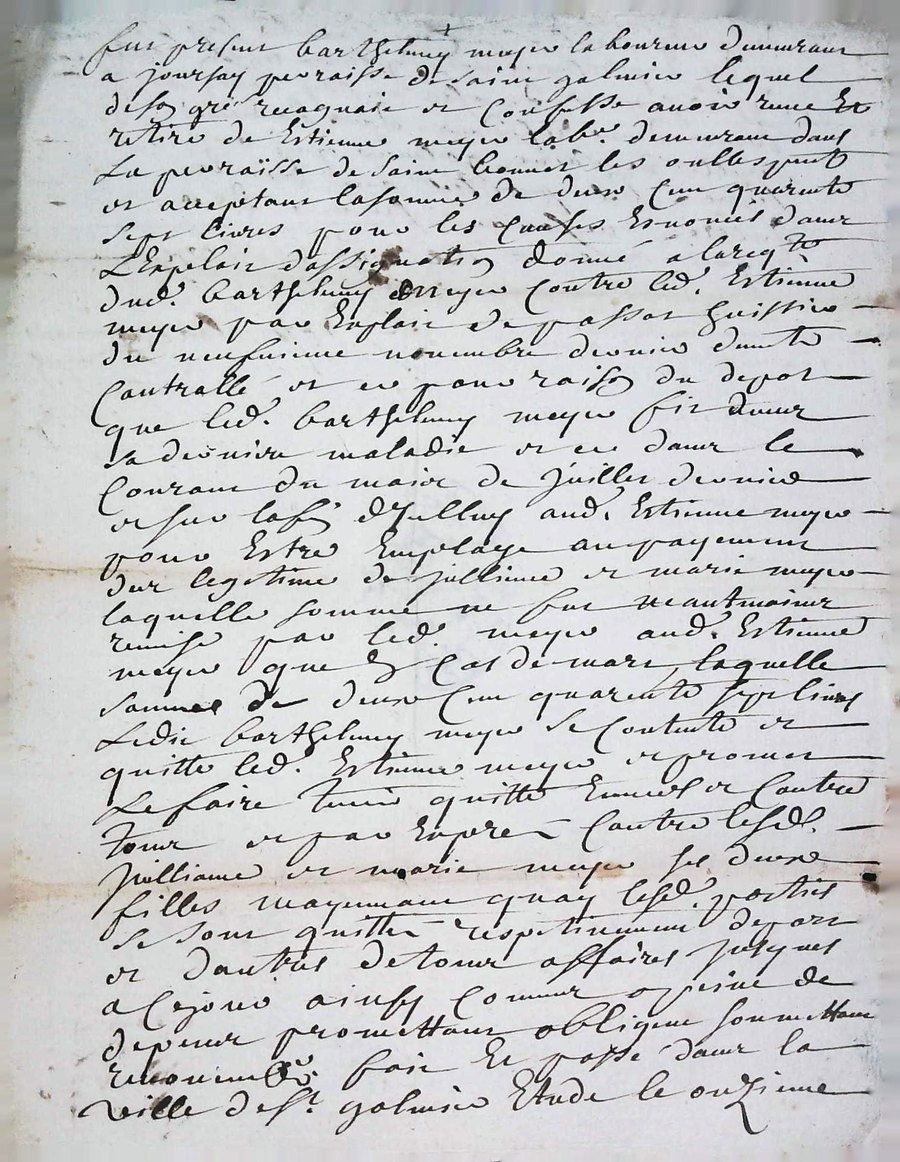 fut present barthelemy meyer laboureur demeurant
a joursay peroisse de saint galmier lequel
de son gré recognait et confesse avoir receu et
retiré de Estienne meyer labr. demeurant dans
La peroisse de saint bonnet les oulles
et acceptant la somme de deux cent quarente
sept livres pour les causes enoncés dans
L'Exploit d'assignation donné a la reqte
dud. barthelemy meyer contre led. Estienne
meyer par Exploit de passot huissier
du neufvieme novembre dernier
Contrallé et ce pour raison du depot
que led. barthelemy meyer fit dans
sa derniere maladie et ce dans le
Courant du mois de juillet dernier
et sur la fin d'Icelluy aud. Estienne meyer
pour Estre Employé au payement
des legitime de jullienne et marie meyer
laquelle somme ne fut neantmoins
remise par led. meyer aud. Estienne
meyer que En cas de mort, laquelle
somme de deux cent quarente sept livres
Ledit barthelemy meyer se contente et
quitte led. Estienne meyer et promet
Le faire tenir quitte Envers et Contre
tous et par Exprés Contre lesd.
jullienne et marie meyer ses deux
filles moyennant quoy lesd. parties
se sont quittés respectivement de part
et d'autres de tous affaires jusques
a ce jour ainsy comme a peine de
depens promettant obligeant soumettant
renoncent fait Et passé dans la
ville de st. galmier Etude le onzieme